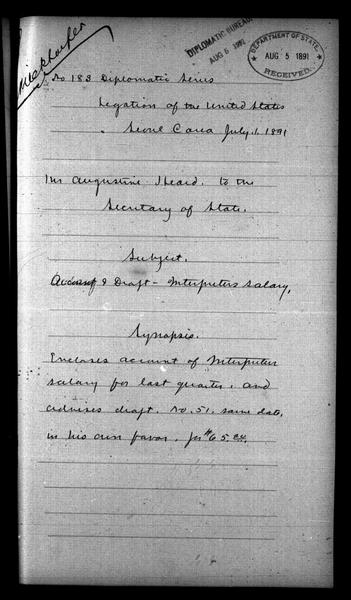 DIPLOMATIC BUREAU
AUG 6 1891
DEPARTMENT OF STATE
AUG 5 1891
RECEIVED
No 183 Diplomatic Series
Legation of the United States
Seoul Corea July 1. 1891
Mr Augustine Heard. to the
Secretary of State.
Subject.
Account & Draft - Interpreters Salary.
Synopsis.
Encloses account of Interpreter
salary for last quarter. and
advises draft. No. 51. same date,
in his own favor. for